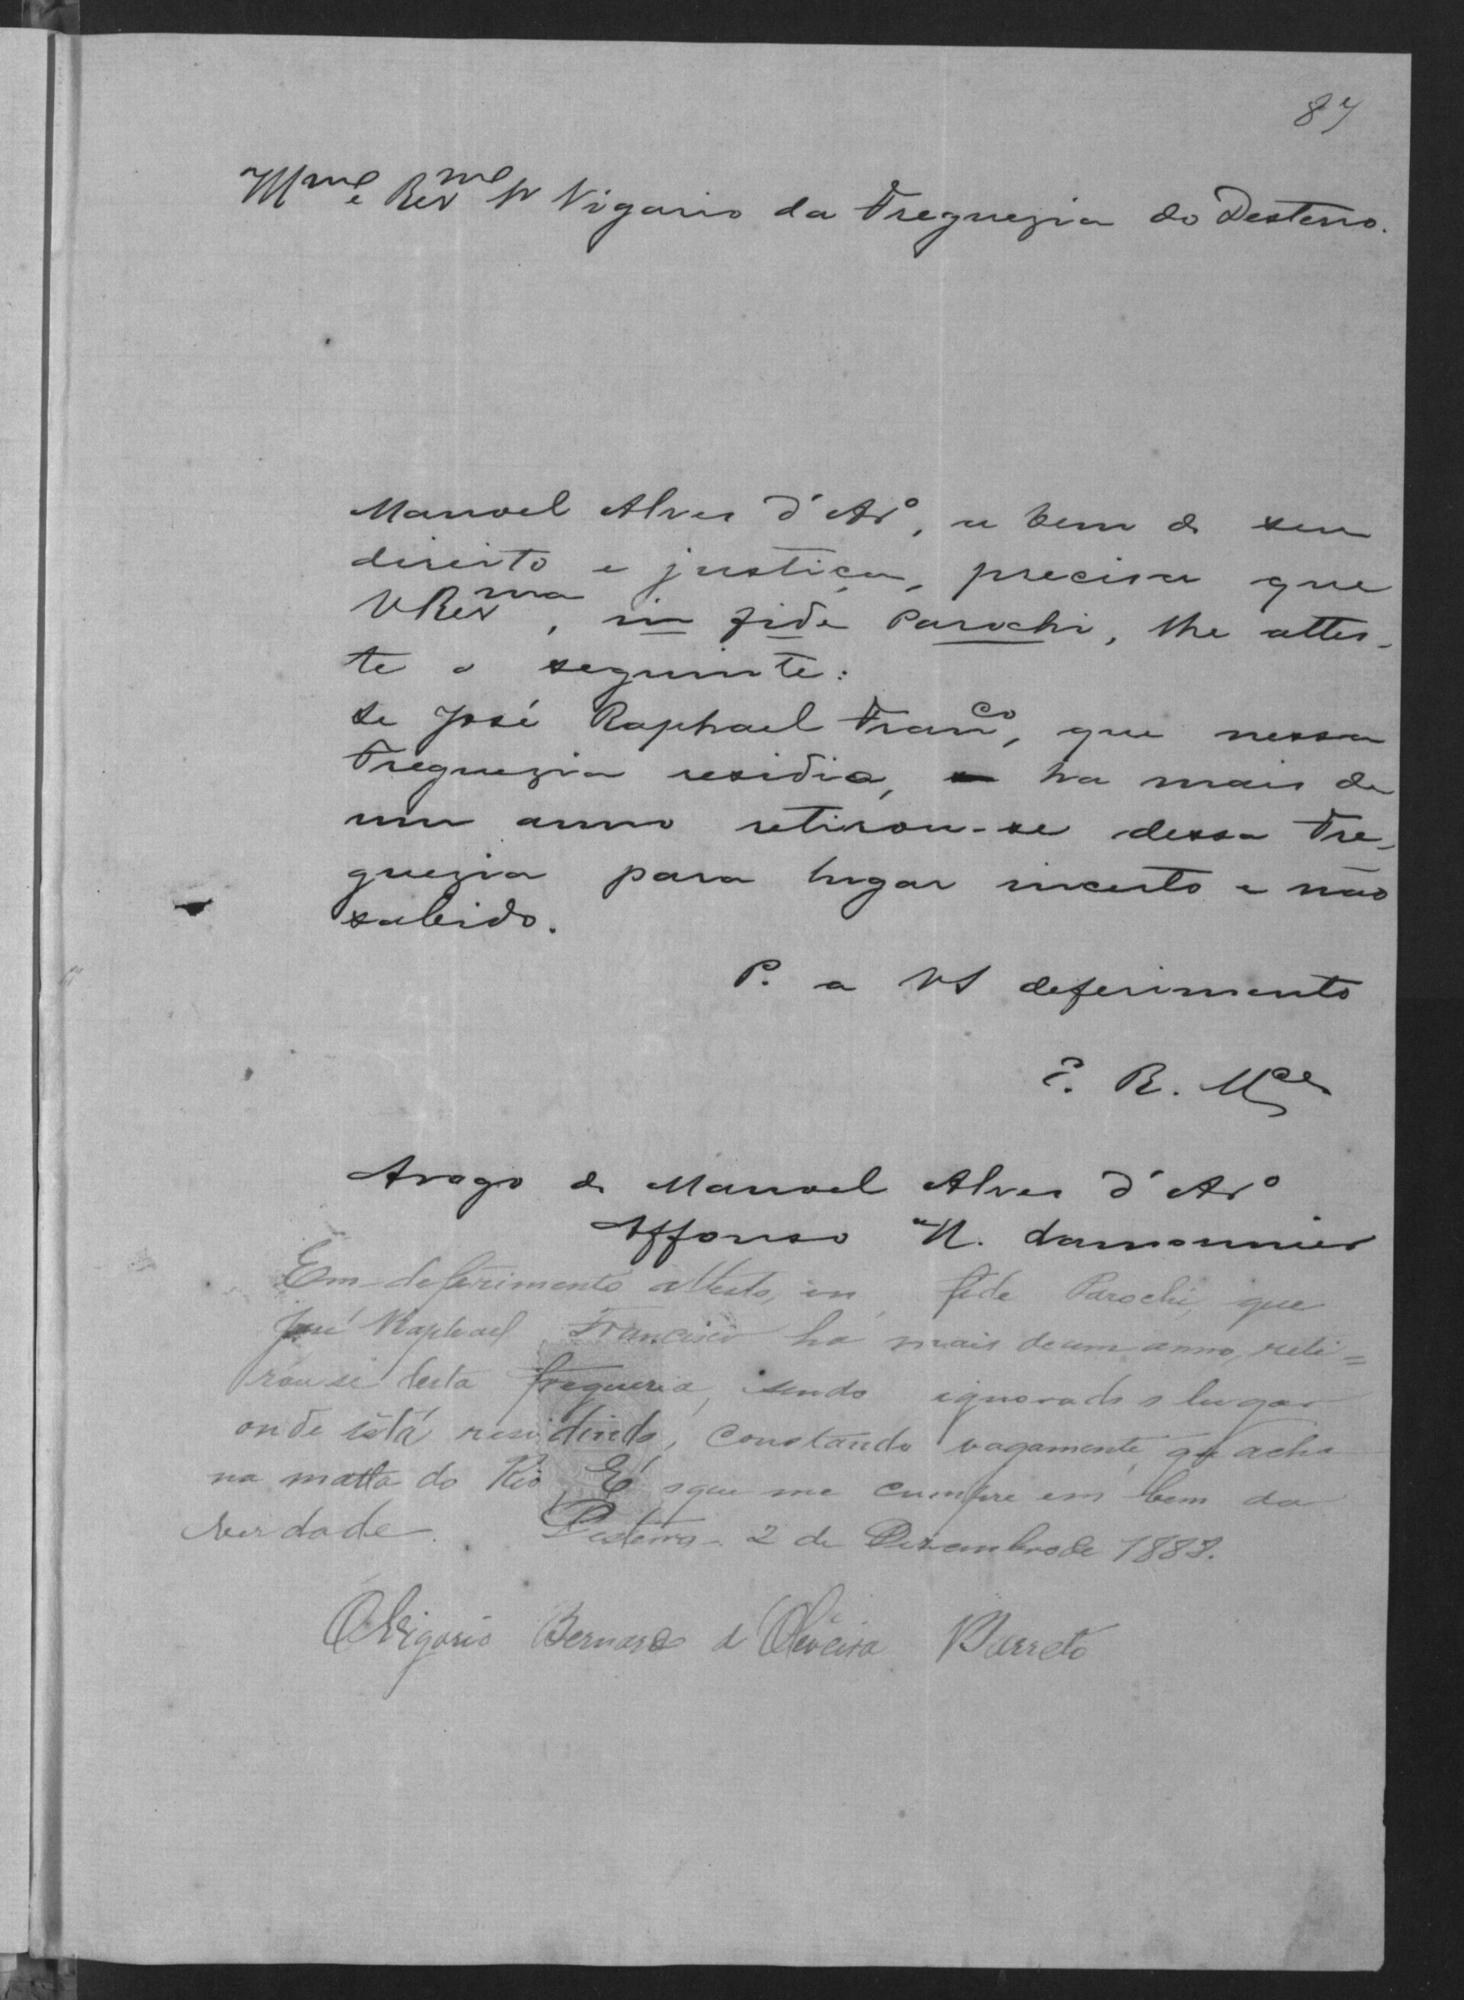 87
Illmo e Revmo Sr Vigario da Freguezia do Desterro.
Manoel Alves d'Aro, a bem de seu
direito e justiça, precisa que
V Revma, in fide Parochi, lhe attes-
te o seguinte:
Se José Raphael Franco, que nessa
Freguezia residia, ha mais de
um anno retirou-se dessa Fre-
guezia para lugar incerto e não
sabido.
P. a VS deferimento
E. R. Mce
Arogo de Manoel Alves d'Aro
Affonso H. Damonnier
Em deferimento attesto, in fide Parochi, que
José Raphael Francisco ha mais de um anno, reti=
rou se desta freguezia, sendo ignorado o lugar
onde está residindo, constando vagamente, q acha
na matta do Rio. E' o que me cumpre em bem da
verdade. Desterro 2 de Dezembro de 1888.
O Vigario Bernardo de Oliveira Barreto